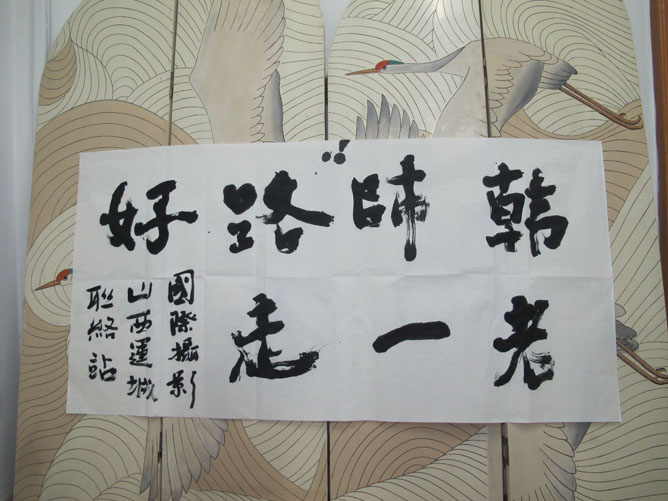 韓老
師一
路走
好
國際攝影
山西運城
聯絡站